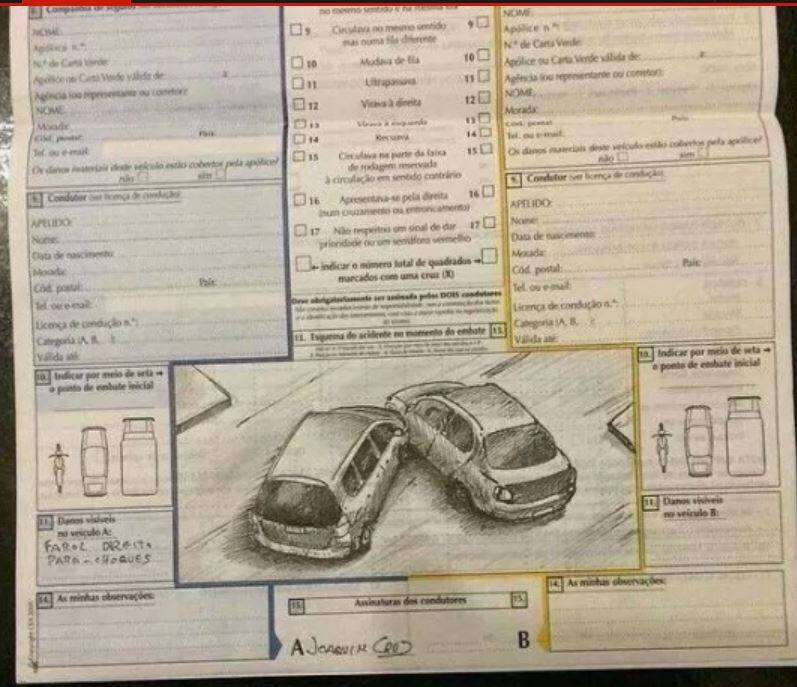 8. Companhia de seguros
NOME:
Apólice n.º:
N.º de Carta Verde:
Apólice ou Carta Verde válida de: a:
Agência (ou representante ou corretor):
NOME:
Morada:
Cód. postal: País:
Tel. ou e-mail:
Os danos materiais deste veículo estão cobertos pela apólice?
não sim
9. Condutor (ver licença de condução)
APELIDO:
Nome:
Data de nascimento:
Morada:
Cód. postal: País:
Tel. ou e-mail:
Licença de condução n.º:
Categoria (A, B, ):
Válida até:
10. Indicar por meio de seta →
o ponto de embate inicial
11. Danos visíveis
no veículo A:
FAROL DIREITO
PARA-CHOQUES
14. As minhas observações:
no mesmo sentido e na mesma fila
9 Circulava no mesmo sentido 9
mas numa fila diferente
10 Mudava de fila 10
11 Ultrapassava 11
12 Virava à direita 12
13 Virava à esquerda 13
14 Recuava 14
15 Circulava na parte da faixa 15
de rodagem reservada
à circulação em sentido contrário
16 Apresentava-se pela direita 16
(num cruzamento ou entroncamento)
17 Não respeitou um sinal de dar 17
prioridade ou um semáforo vermelho
← indicar o número total de quadrados →
marcados com uma cruz (X)
Deve obrigatoriamente ser assinada pelos DOIS condutores
13. Esquema do acidente no momento do embate 13.
15. Assinaturas dos condutores 15.
A JOAQUIM CRUZ B
NOME:
Apólice n.º:
N.º de Carta Verde:
Apólice ou Carta Verde válida de: a:
Agência (ou representante ou corretor):
NOME:
Morada:
Cód. postal: País:
Tel. ou e-mail:
Os danos materiais deste veículo estão cobertos pela apólice?
não sim
9. Condutor (ver licença de condução)
APELIDO:
Nome:
Data de nascimento:
Morada:
Cód. postal: País:
Tel. ou e-mail:
Licença de condução n.º:
Categoria (A, B, ):
Válida até:
10. Indicar por meio de seta →
o ponto de embate inicial
11. Danos visíveis
no veículo B:
14. As minhas observações: